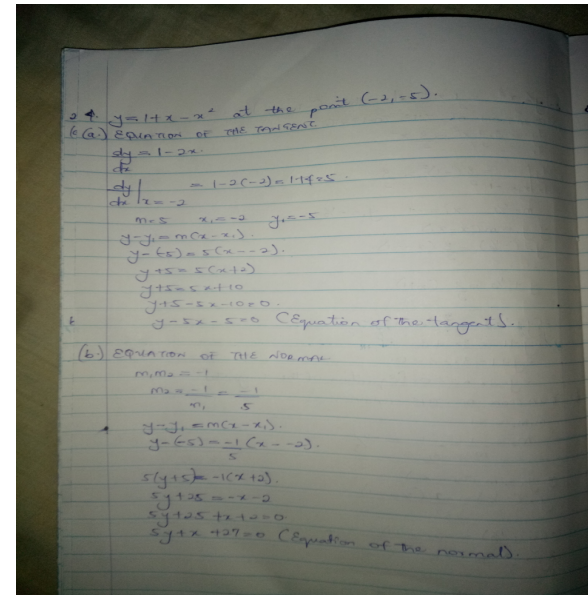 24. y=1+x-x² at the point (-2,-5).
(a.) EQUATION OF THE TANGENT
dy = 1-2x.
dx
dy | = 1-2(-2)=1+4=5.
dx | x=-2
m=5 x₁=-2 y₁=-5
y-y₁=m(x-x₁).
y-(-5)=5(x--2).
y+5=5(x+2)
y+5=5x+10
y+5-5x-10=0.
y-5x-5=0 (Equation of the tangent).
(b.) EQUATION OF THE NORMAL
m₁m₂=-1
m₂=-1 = -1
m₁ 5
y-y₁=m(x-x₁).
y-(-5)=-1(x--2).
5
5(y+5)=-1(x+2).
5y+25=-x-2
5y+25+x+2=0
5y+x+27=0 (Equation of the normal).